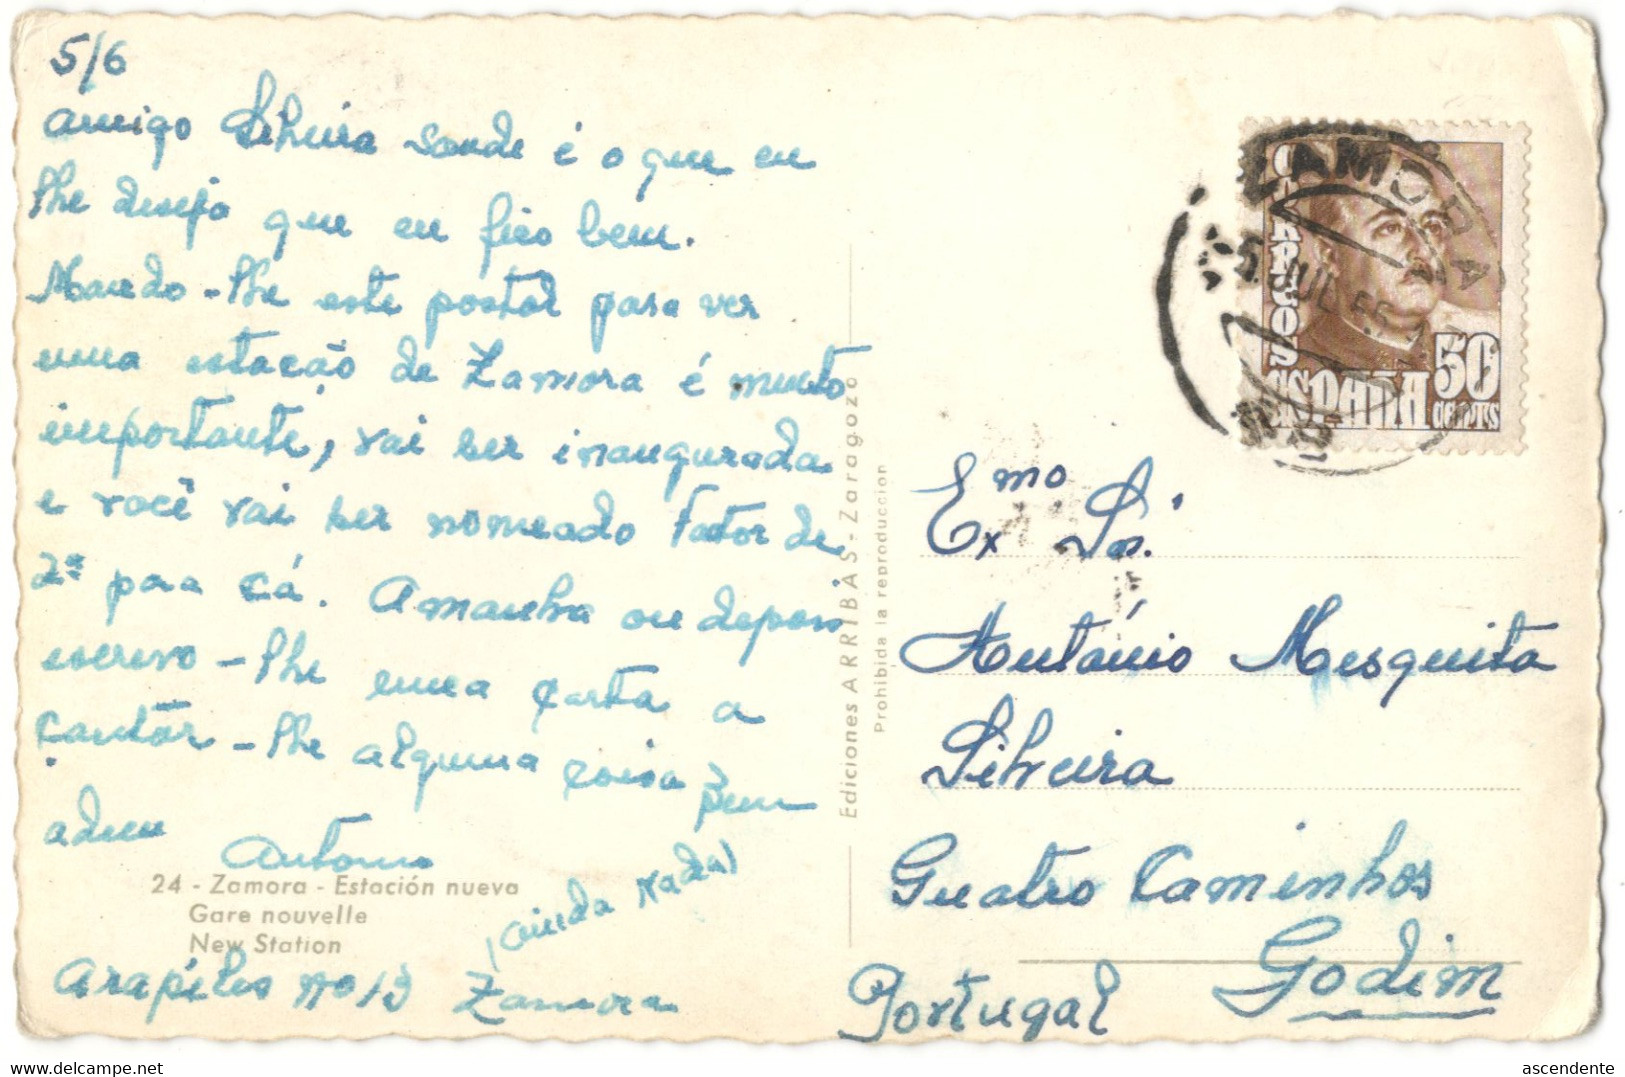 5/6
amigo Silveira saude é o que eu
lhe desejo que eu fico bem.
Mando-lhe este postal para ver
uma estação de Zamora é muito
importante, vai ser inaugurada
e você vai ser nomeado Fator de
2ª para cá. Amanha ou depois
escrevo-lhe uma carta a
çantar-lhe alguma coisa
adeus
Antonio
(ainda Nada)
24 - Zamora - Estación nueva
Gare nouvelle
New Station
Arapiles nº 13 Zamora
Ediciones ARRIBAS - Zaragoza
Prohibida la reproduccion
ZAMORA
5 JUL 55
CORREOS
ESPAÑA
50
CENTS
Exmo Sr.
António Mesquita
Silveira
Quatro Caminhos
Godim
Portugal
ascendente